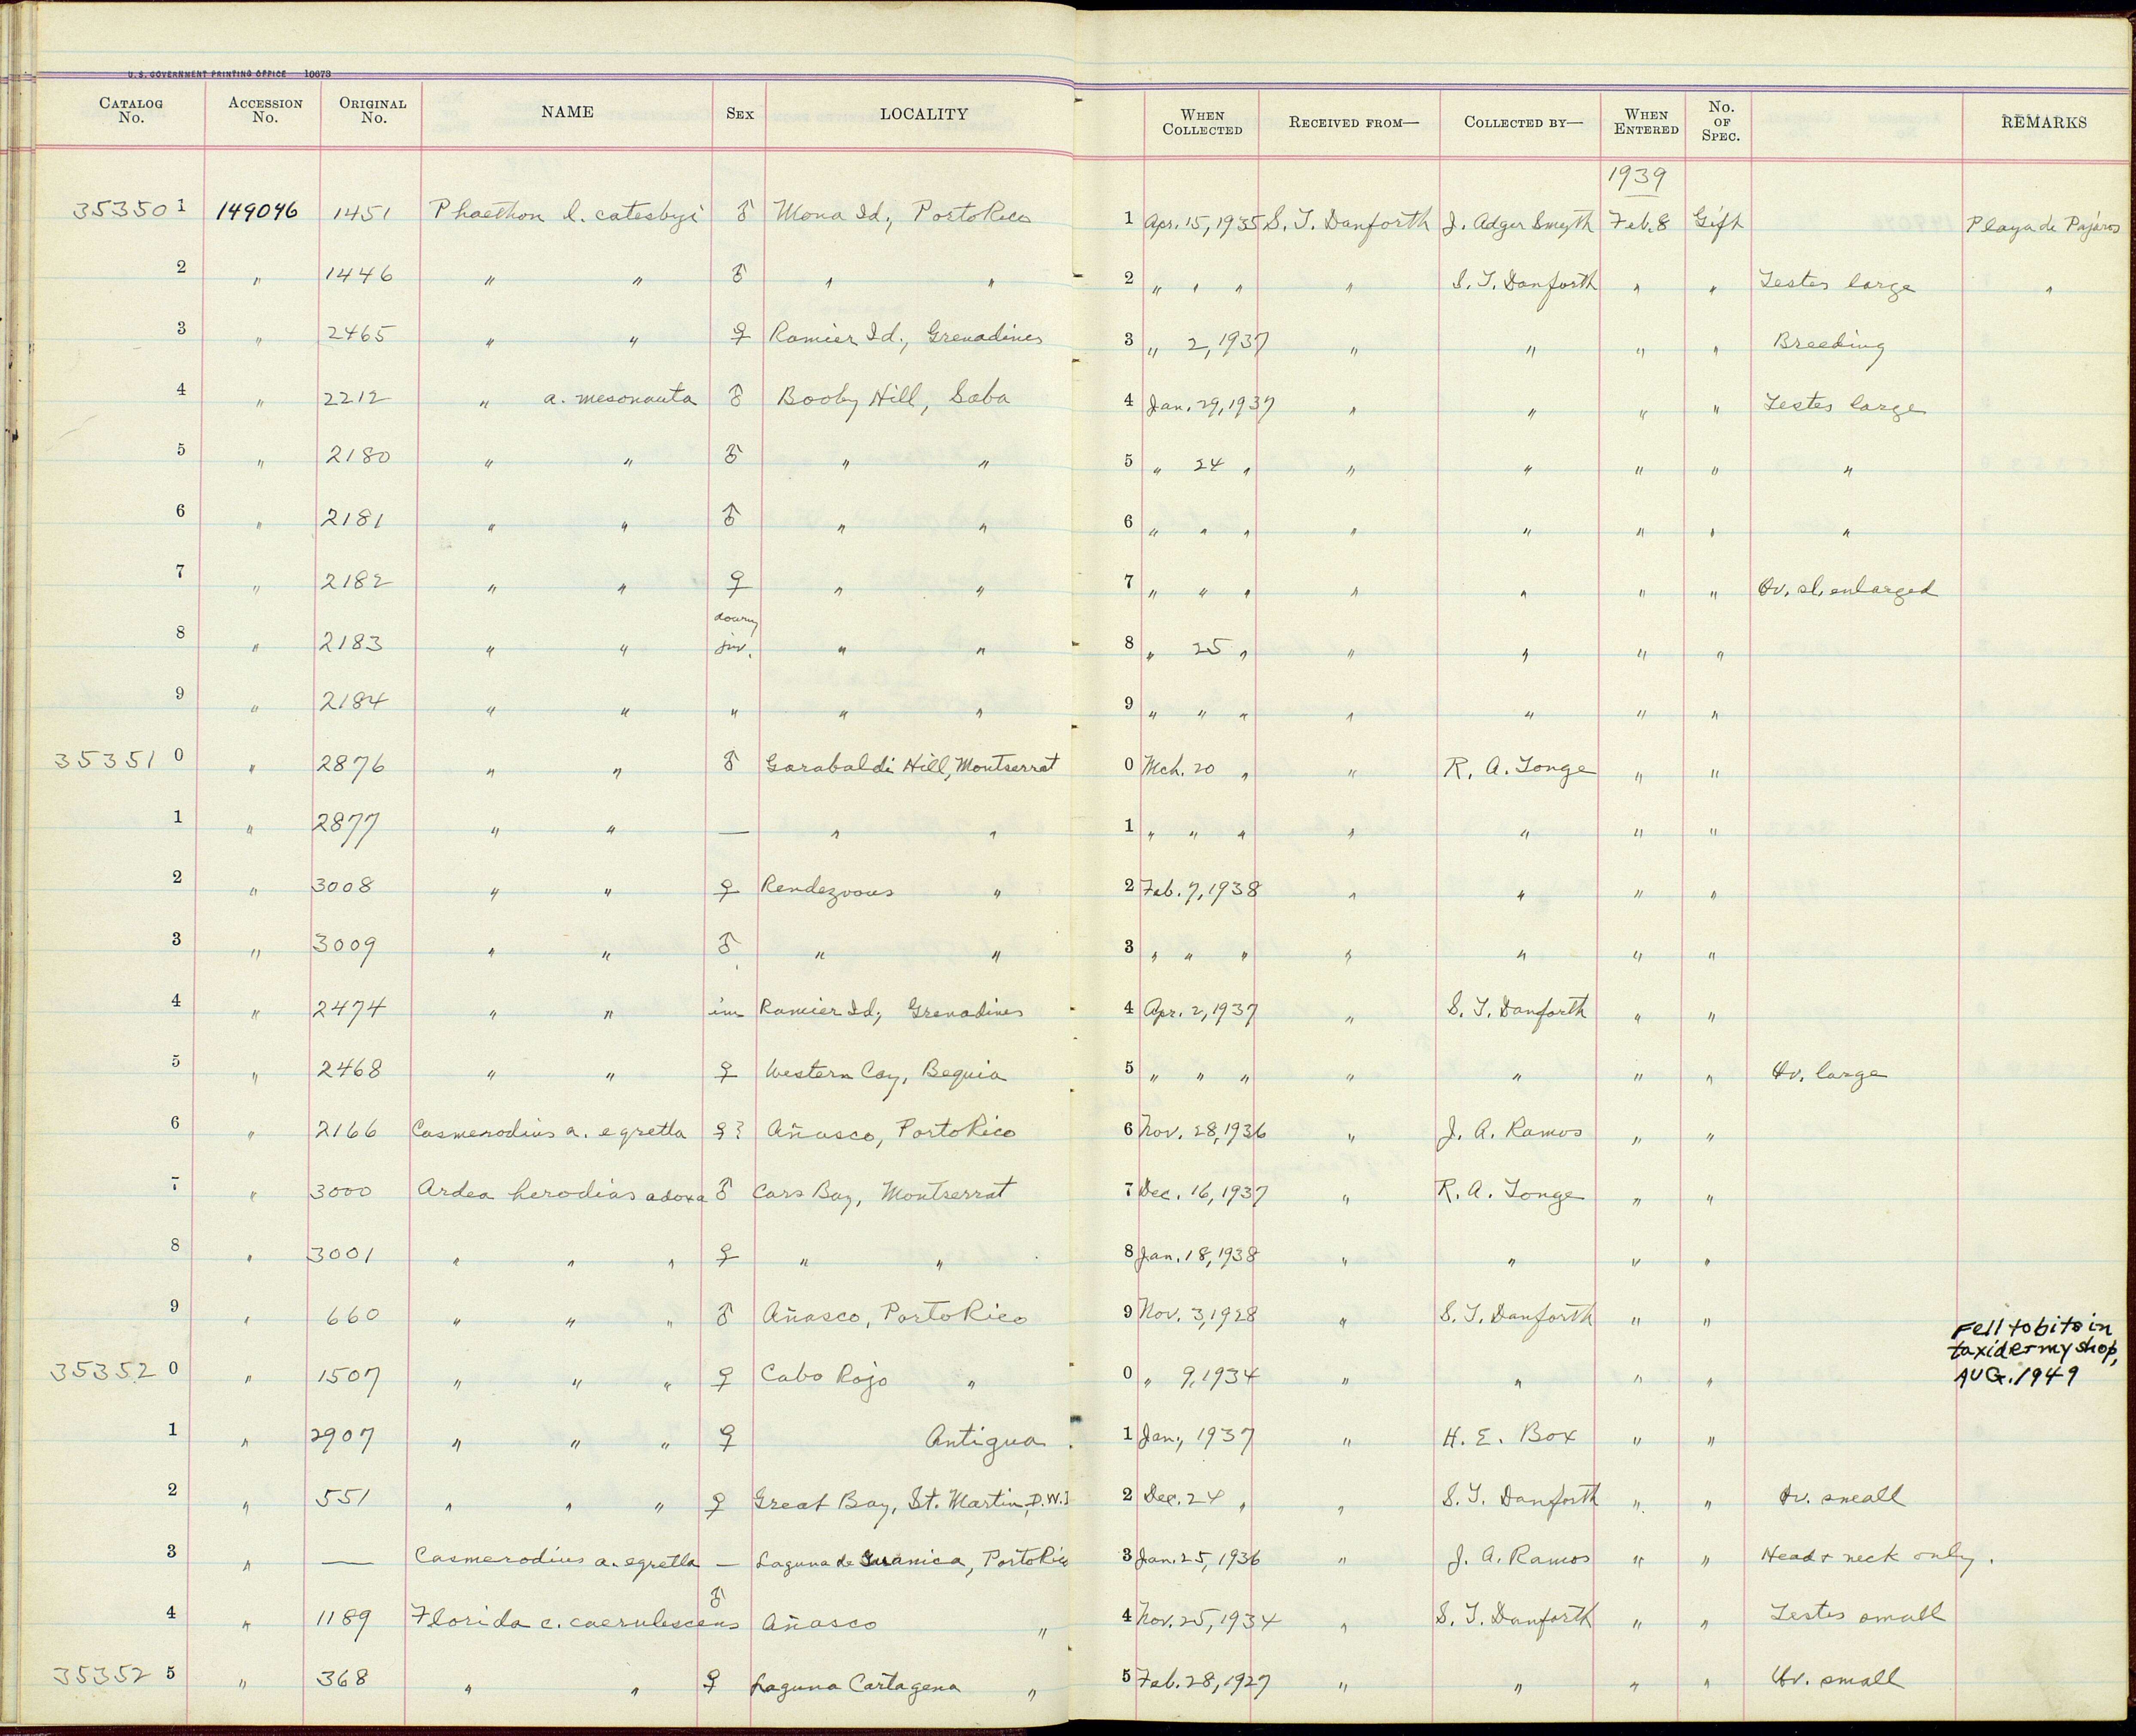 U. S. GOVERNMENT PRINTING OFFICE 10073
CATALOG No. ACCESSION No. ORIGINAL No. NAME SEX LOCALITY WHEN COLLECTED RECEIVED FROM— COLLECTED BY— WHEN ENTERED No. OF SPEC. REMARKS
1939
35350 1 149046 1451 Phaethon l. catesbyi ♂ Mona Id., Porto Rico 1 Apr. 15, 1935 S. T. Danforth J. Adger Smyth Feb. 8 Gift Playa de Pajaros
2 " 1446 " " ♂ " " 2 " " " " S. T. Danforth " " Testes large "
3 " 2465 " " ♀ Ramier Id., Grenadines 3 " 2, 1937 " " " " Breeding
4 " 2212 " a. mesonauta ♂ Booby Hill, Saba 4 Jan. 29, 1937 " " " " Testes large
5 " 2180 " " ♂ " " 5 " 24 " " " " " "
6 " 2181 " " ♂ " " 6 " " " " " " " "
7 " 2182 " " ♀ " " 7 " " " " " " " Ov. sl. enlarged
8 " 2183 " " downy juv. " " 8 " 25 " " " " "
9 " 2184 " " " " " 9 " " " " " " "
35351 0 " 2876 " " ♂ Garabaldi Hill, Montserrat 0 Mch. 20 " " R. A. Tonge " "
1 " 2877 " " — " " 1 " " " " " " "
2 " 3008 " " ♀ Rendezvous " 2 Feb. 7, 1938 " " " "
3 " 3009 " " ♂ " " 3 " " " " " " "
4 " 2474 " " im Ramier Id., Grenadines 4 Apr. 2, 1937 " S. T. Danforth " "
5 " 2468 " " ♀ Western Cay, Bequia 5 " " " " " " " Ov. large
6 " 2166 Casmerodius a. egretta ♀? Añasco, Porto Rico 6 Nov. 28, 1936 " J. A. Ramos " "
7 " 3000 Ardea herodias adoxa ♂ Cars Bay, Montserrat 7 Dec. 16, 1937 " R. A. Tonge " "
8 " 3001 " " " ♀ " " 8 Jan. 18, 1938 " " " "
9 " 660 " " " ♂ Añasco, Porto Rico 9 Nov. 3, 1928 " S. T. Danforth " "
35352 0 " 1507 " " " ♀ Cabo Rojo " 0 " 9, 1934 " " " " Fell to bits in taxidermy shop, AUG. 1949
1 " 2907 " " " ♀ Antigua 1 Jan., 1937 " H. E. Box " "
2 " 551 " " " ♀ Great Bay, St. Martin, D.W.I 2 Dec. 24 " " S. T. Danforth " " Ov. small
3 " — Casmerodius a. egretta — Laguna de Guanica, Porto Rico 3 Jan. 25, 1936 " J. A. Ramos " " Head & neck only.
4 " 1189 Florida c. caerulescens ♂ Añasco " 4 Nov. 25, 1934 " S. T. Danforth " " Testes small
35352 5 " 368 " " ♀ Laguna Cartagena " 5 Feb. 28, 1927 " " " " Ov. small